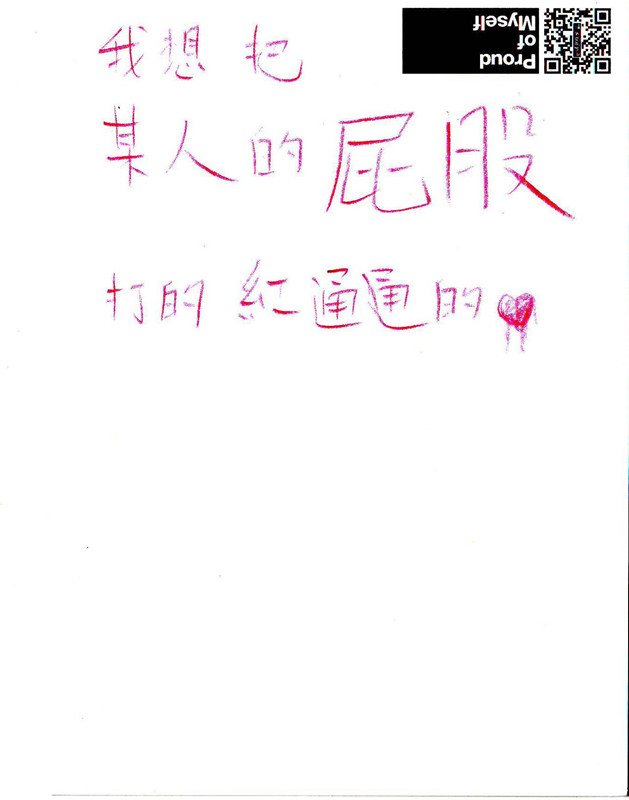 我想把
某人的屁股
打的紅通通的
Proud
of
Myself